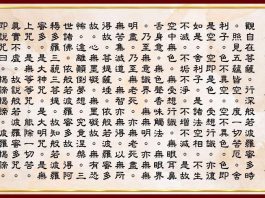 觀自在菩薩。行深般若波羅蜜多時
。照見五蘊皆空。度一切苦厄。舍
利子。色不異空。空不異色。色即
是空。空即是色。受想行識。亦復
如是。舍利子。是諸法空相。不生
不滅。不垢不淨。不增不減。是故
空中無色。無受想行識。無眼耳鼻
舌身意。無色聲香味觸法。無眼界
。乃至無意識界。無無明。亦無無
明盡。乃至無老死。亦無老死盡。
無苦集滅道。無智亦無得。以無所
得故。菩提薩埵。依般若波羅蜜多
故。心無罣礙。無罣礙故。無有恐
怖。遠離顛倒夢想。究竟涅槃。三
世諸佛。依般若波羅蜜多故。得阿
耨多羅三藐三菩提。故知般若波羅
蜜多。是大神咒。是大明咒。是無
上咒。是無等等咒。能除一切苦。
真實不虛。故說般若波羅蜜多咒。
即說咒曰。揭諦揭諦。波羅揭諦。